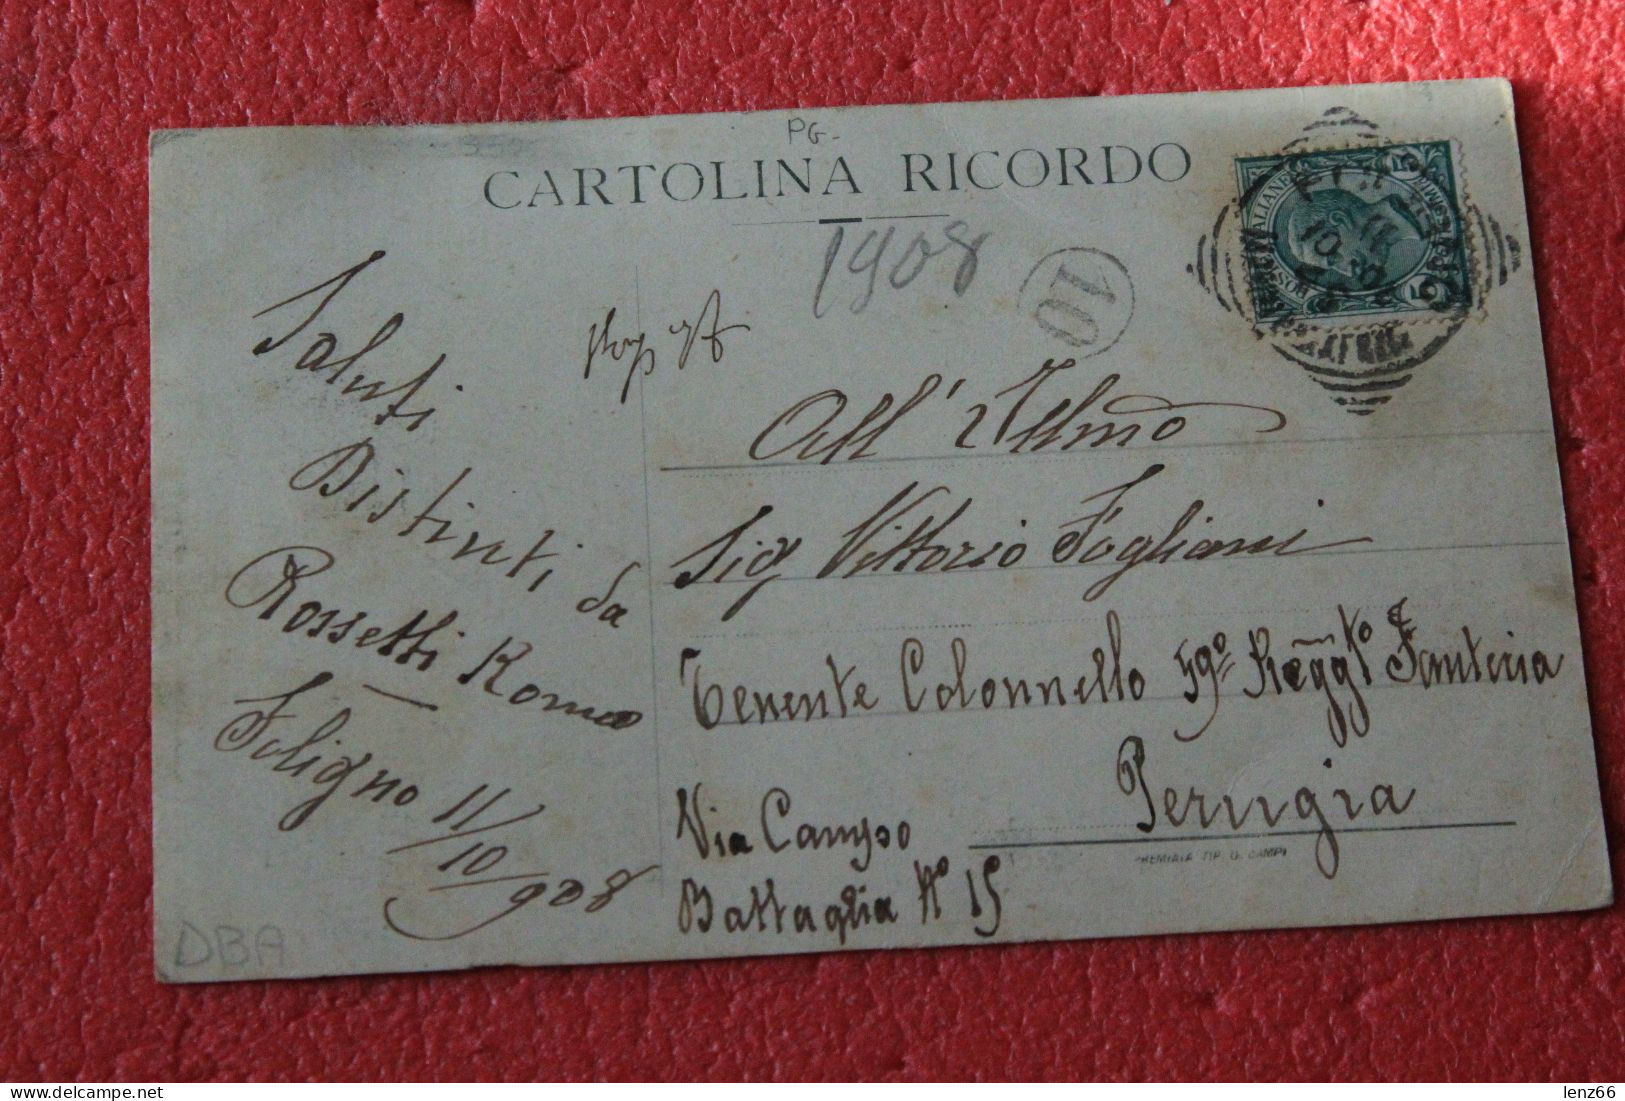 PG-
CARTOLINA RICORDO
1908
10
Saluti
Distinti da
Rossetti Romeo
Foligno 11/10/908
All' Illmo
Sig Vittorio Fogliani
Tenente Colonnello 59º Reggto Fanteria
Perugia
Via Campo
Battaglia Nº 15
PREMIATA TIP. G. CAMPI
DBA
lenz66